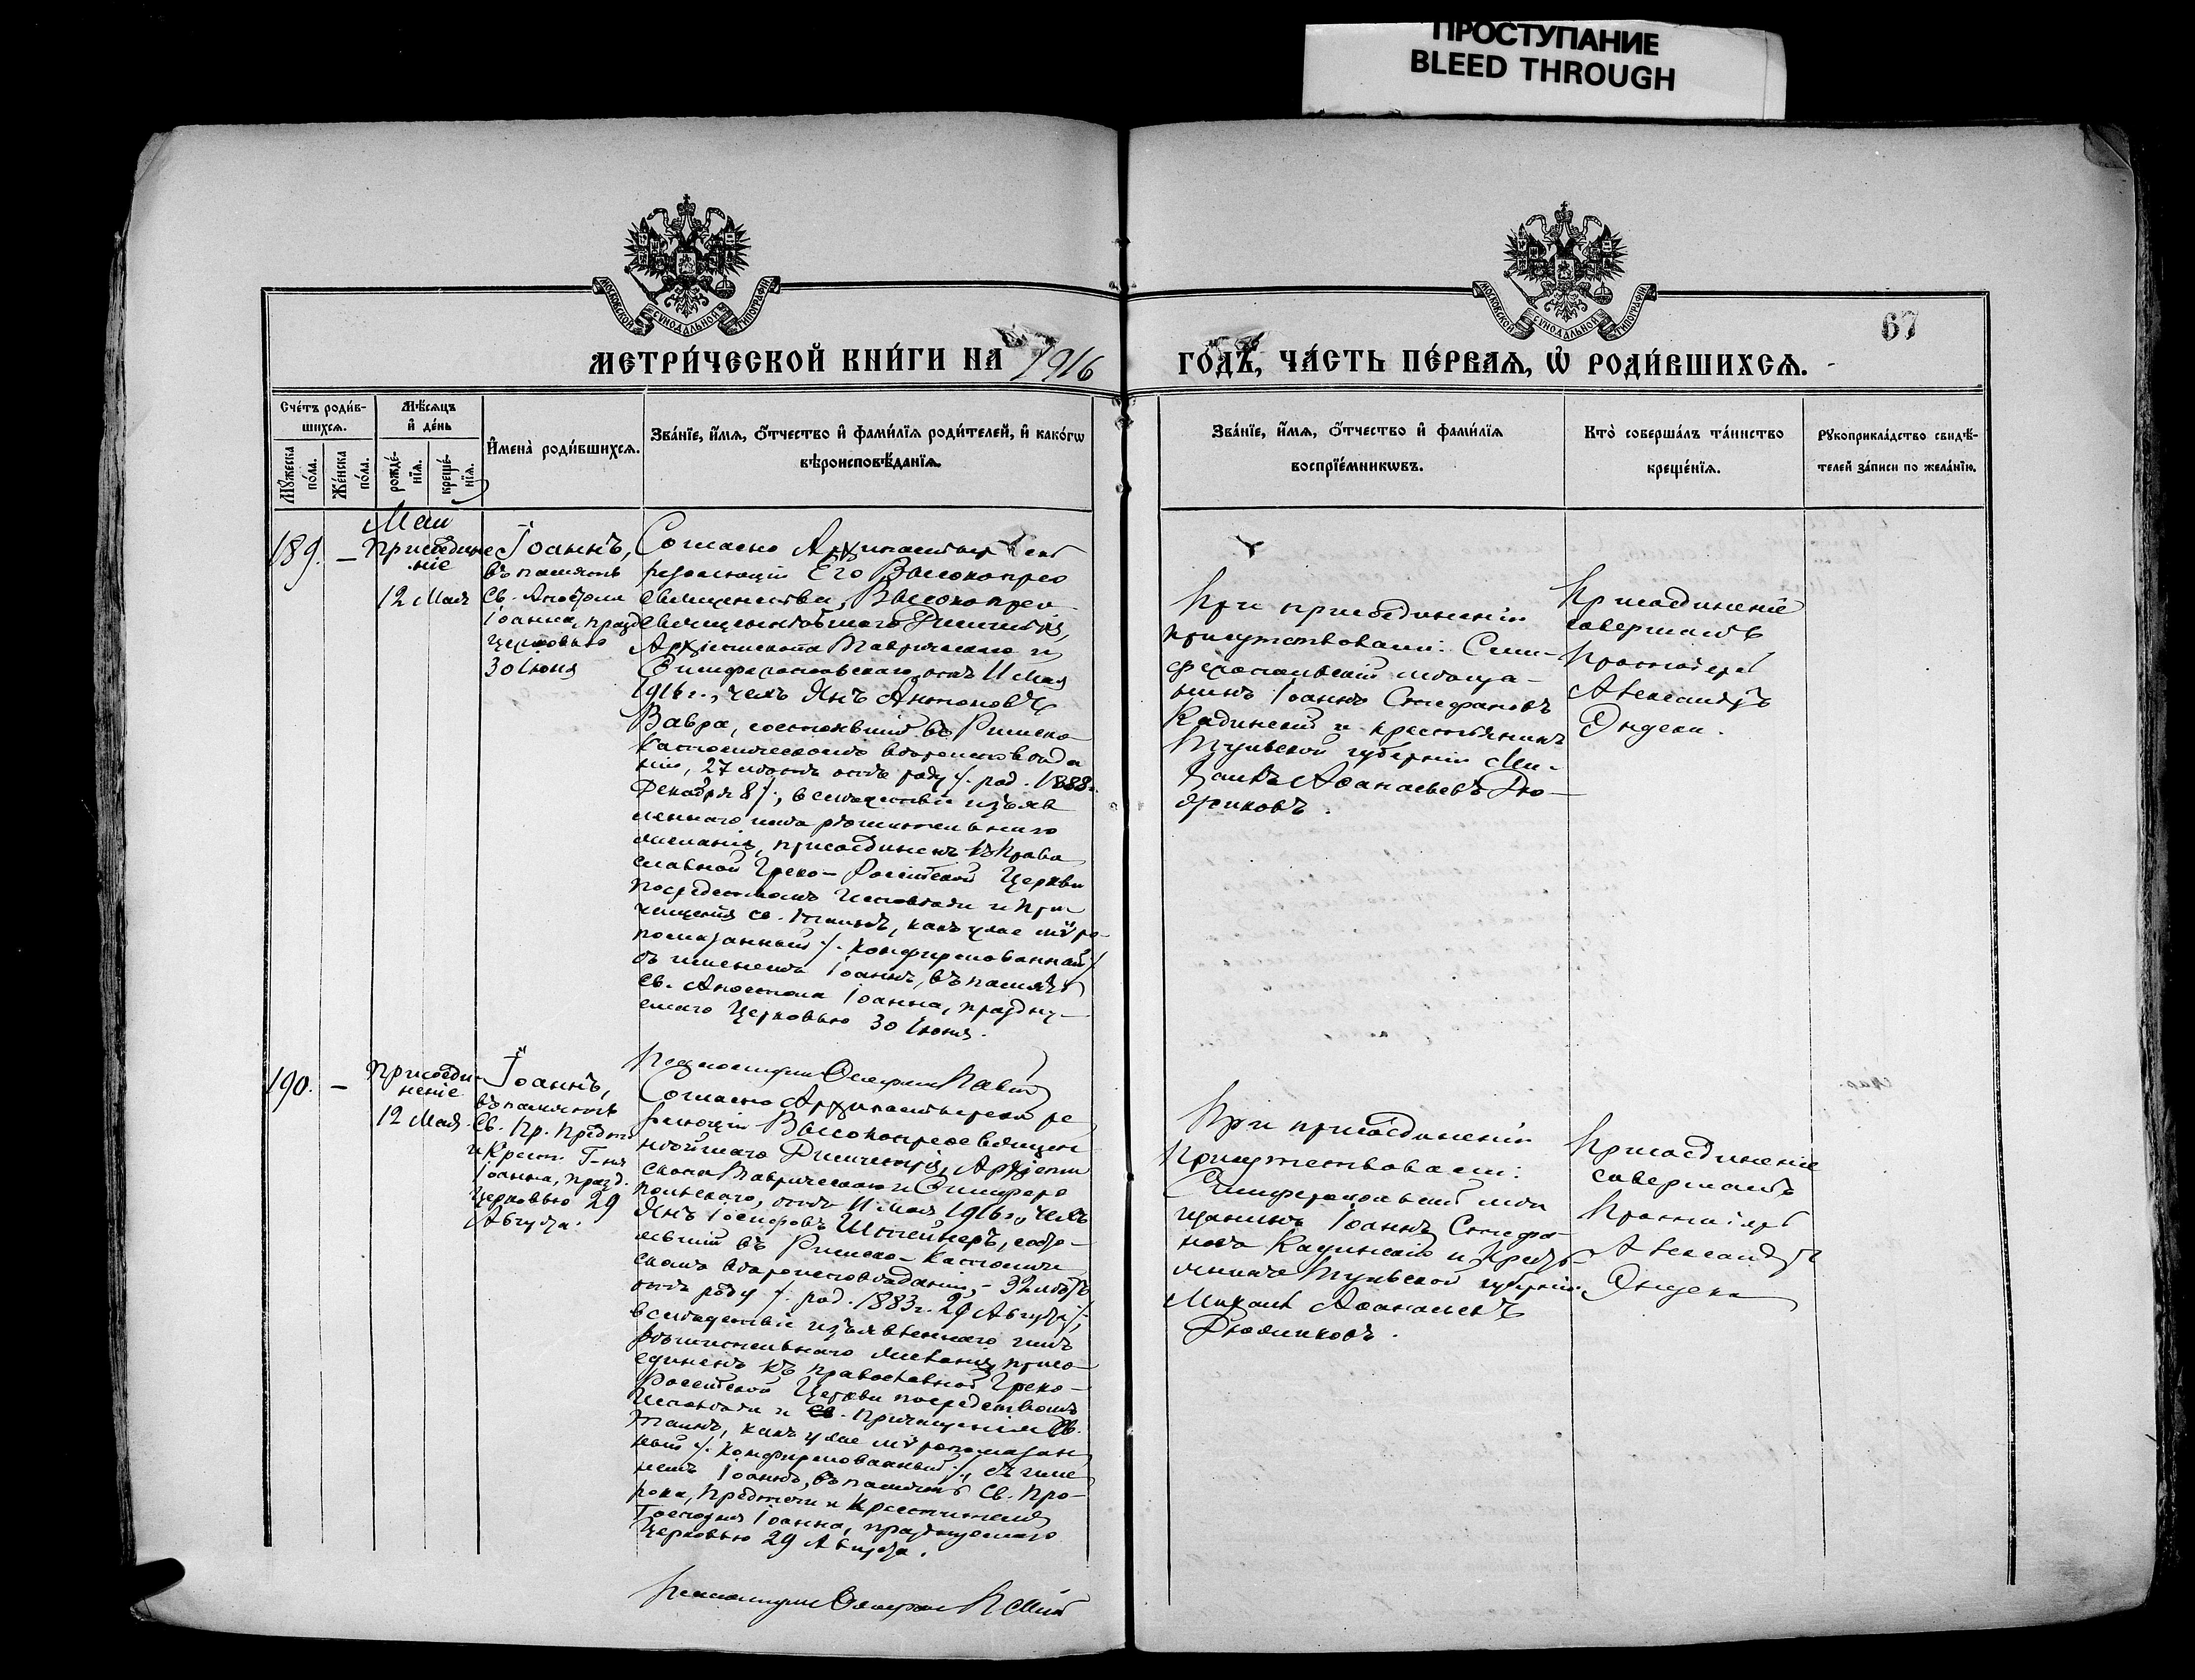 ПРОСТУПАНИЕ
BLEED THROUGH
МОСКОВСКОЙ СѴНОДАЛЬНОЙ ТИПОГРАФІИ
МОСКОВСКОЙ СѴНОДАЛЬНОЙ ТИПОГРАФІИ
67
МЕТРИ́ЧЕСКОЙ КНИ́ГИ НА 1916
ГОДЪ, ЧА́СТЬ ПЕ́РВАЯ, Ѡ҆ РОДИ́ВШИХСЯ.
Сче́тъ роди́в-
шихся.
Мѣ́сяцъ
и҆ де́нь
Му́жеска по́ла.
Же́нска по́ла.
рожде́-
нїя.
креще́-
нїя.
И҆мена̀ роди́вшихся.
Зва́нїе, и҆́мя, ѻ҆́тчество и҆ фами́лїя роди́телей, и҆ како́гѡ
вѣроисповѣ́данїя.
Зва́нїе, и҆́мя, ѻ҆́тчество и҆ фами́лїя
воспрїе́мникѡвъ.
Кто̀ соверша́лъ та́инство
креще́нїя.
Рукоприкла́дство свидѣ́-
телей за́писи по жела́нїю.
189.
—
Май
Присоедине
ніе
12 Мая
Іоаннъ,
въ память
Св. Апостола
Іоанна, празд
церковью
30 Іюня
Согласно Архипастырской
резолюціи Его Высокопрео
священства, Высокопрео
священнѣйшаго Димитрія,
Архіепископа Таврическаго и
Симферопольскаго, отъ 11 Мая
1916 г., чехъ Янъ Антоновъ
Вавра, состоявшій въ Римско
Католическомъ вѣроисповѣда
ніи, 27 лѣтъ отъ роду /. род. 1888 г.
Декабря 8 /, вслѣдствіе изъяв
леннаго имъ рѣшительнаго
желанія, присоединенъ къ Право
славной Греко-Россійской Церкви
посредствомъ Исповѣди и При
чащенія Св. Таинъ, какъ уже мѵро-
помазанный /. конфирмованный /
съ именемъ Іоаннъ, въ память
Св. Апостола Іоанна, праздну-
емаго Церковью 30 Іюня.
При присоединеніи
присутствовали: Сим-
феропольскій мѣща-
нинъ Іоаннъ Стефановъ
Кадинскій и крестьянинъ
Тульской губерніи Ми-
хаилъ Аѳанасьевъ
Присоединеніе
совершалъ
Протоіерей
Александръ
Эндека.
190.
—
Присоеди-
неніе
12 Мая
Іоаннъ,
въ память
Св. Пр. Предт.
и Крест. Г-ня
Іоанна, празд.
Церковью 29
Августа.
Согласно Архипастырской ре
золюціи Высокопреосвящен
нѣйшаго Димитрія, Архіепи
скопа Таврическаго и Симферо
польскаго, отъ 11 Мая 1916 г., чехъ
Янъ Іосифовъ Штейнеръ, состо-
явшій въ Римско-Католиче
скомъ вѣроисповѣданіи, - 32 лѣтъ
отъ роду /. род. 1883 г. 29 Августа /,
вслѣдствіе изъявленнаго имъ
рѣшительнаго желанія, присо-
единенъ къ Православной Греко-
Россійской Церкви посредствомъ
Исповѣди и Св. Причащенія Св.
Таинъ, какъ уже мѵропомазан
ный /. конфирмованный /, съ име
немъ Іоаннъ, въ память Св. Про-
рока, Предтечи и Крестителя
Господня Іоанна, празднуемаго
Церковью 29 Августа.
При присоединеніи
присутствовали:
Симферопольскій мѣ
щанинъ Іоаннъ Стефа
новъ Кадинскій и крестья
нинъ Тульской губерніи
Михаилъ Аѳанасьевъ
Присоединеніе
совершалъ
Протоіерей
Александръ
Эндека